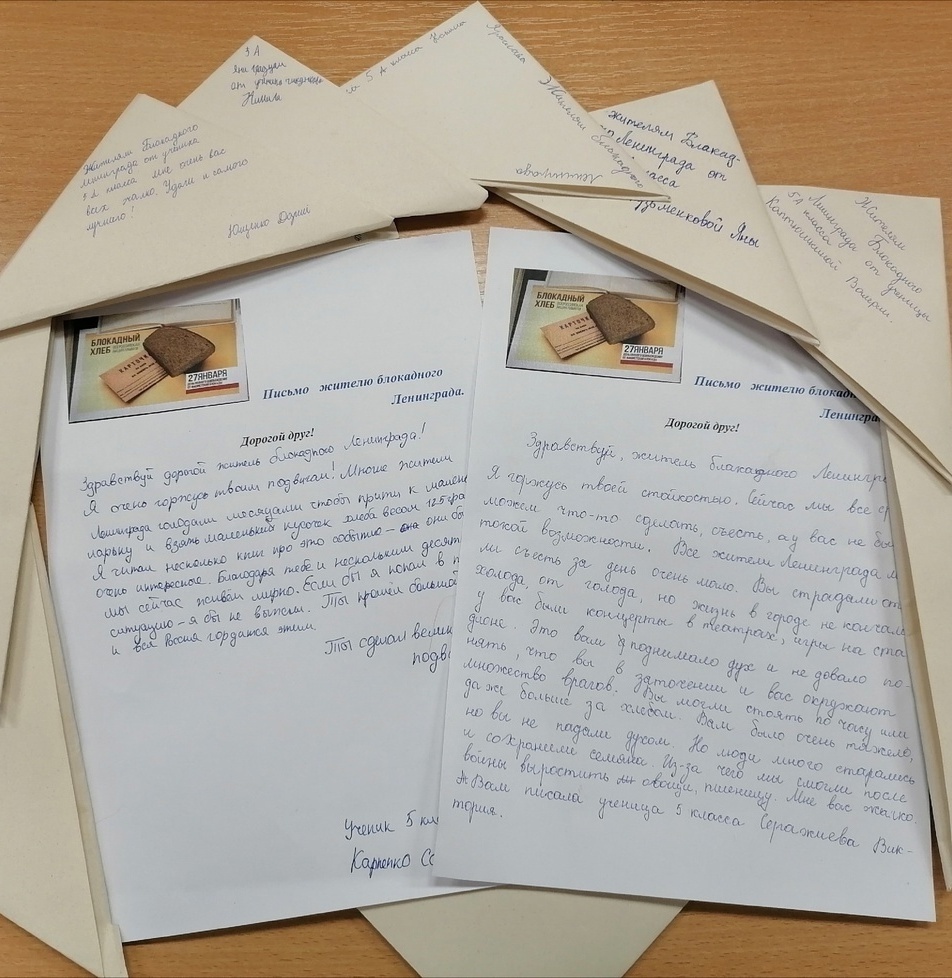 3 А
от ученика
Никиты
5 А класса
Ярослава
Жителям блокадного
Ленинграда
Жителям Блокадного
Ленинграда от ученика
5 А класса. Мне очень вас
всех жалко. Удачи и самого
лучшего!
Ющенко Дарий
жителям Блокад-
го Ленинграда от
класса
Кузьменковой Яны
Жителям
Блокадного
Ленинграда от ученицы
5А класса
Валерии.
БЛОКАДНЫЙ
ХЛЕБ
КАРТОЧКА
27 ЯНВАРЯ
Письмо жителю блокадного
Ленинграда.
Дорогой друг!
Здравствуй дорогой житель блокадного Ленинграда!
Я очень горжусь твоим подвигом! Многие жители
Ленинграда голодали месяцами чтобы прийти к малень
ларьку и взять маленький кусочек хлеба весом 125 гра
Я читал несколько книг про это событие – они бы
очень интересные. Благодаря тебе и нескольким десят
мы сейчас живём мирно. Если бы я попал в т
ситуацию – я бы не выжил. Ты прошёл большой
и вся Россия гордится этим.
Ты сделал велик
подв
Ученик 5 кла
Карпенко Се
БЛОКАДНЫЙ
ХЛЕБ
КАРТОЧКА
27 ЯНВАРЯ
Письмо жителю блокадн
Ленингра
Дорогой друг!
Здравствуй, житель блакадного Ленингр
Я горжусь твоей стойкостью. Сейчас мы все с
можем что-то сделать, съесть, а у вас не бы
такой возможности. Все жители Ленинграда м
ли съесть за день очень мало. Вы страдали от
холода, от голода, но жизнь в городе не кончала
у вас были концерты в театрах, игры на ста
дионе. Это вам поднимало дух и не довало по-
нять, что вы в заточении и вас окружают
множество врагов. Вы могли стоять по часу или
даже больше за хлебом. Вам было очень тяжело,
но вы не падали духом. Но люди много старались
и сохранили семяна. Из-за чего мы смогли после
войны вырастить овощи, пшеницу. Мне вас жалко.
Вам писала ученица 5 класса Серажиева Вик-
тория.